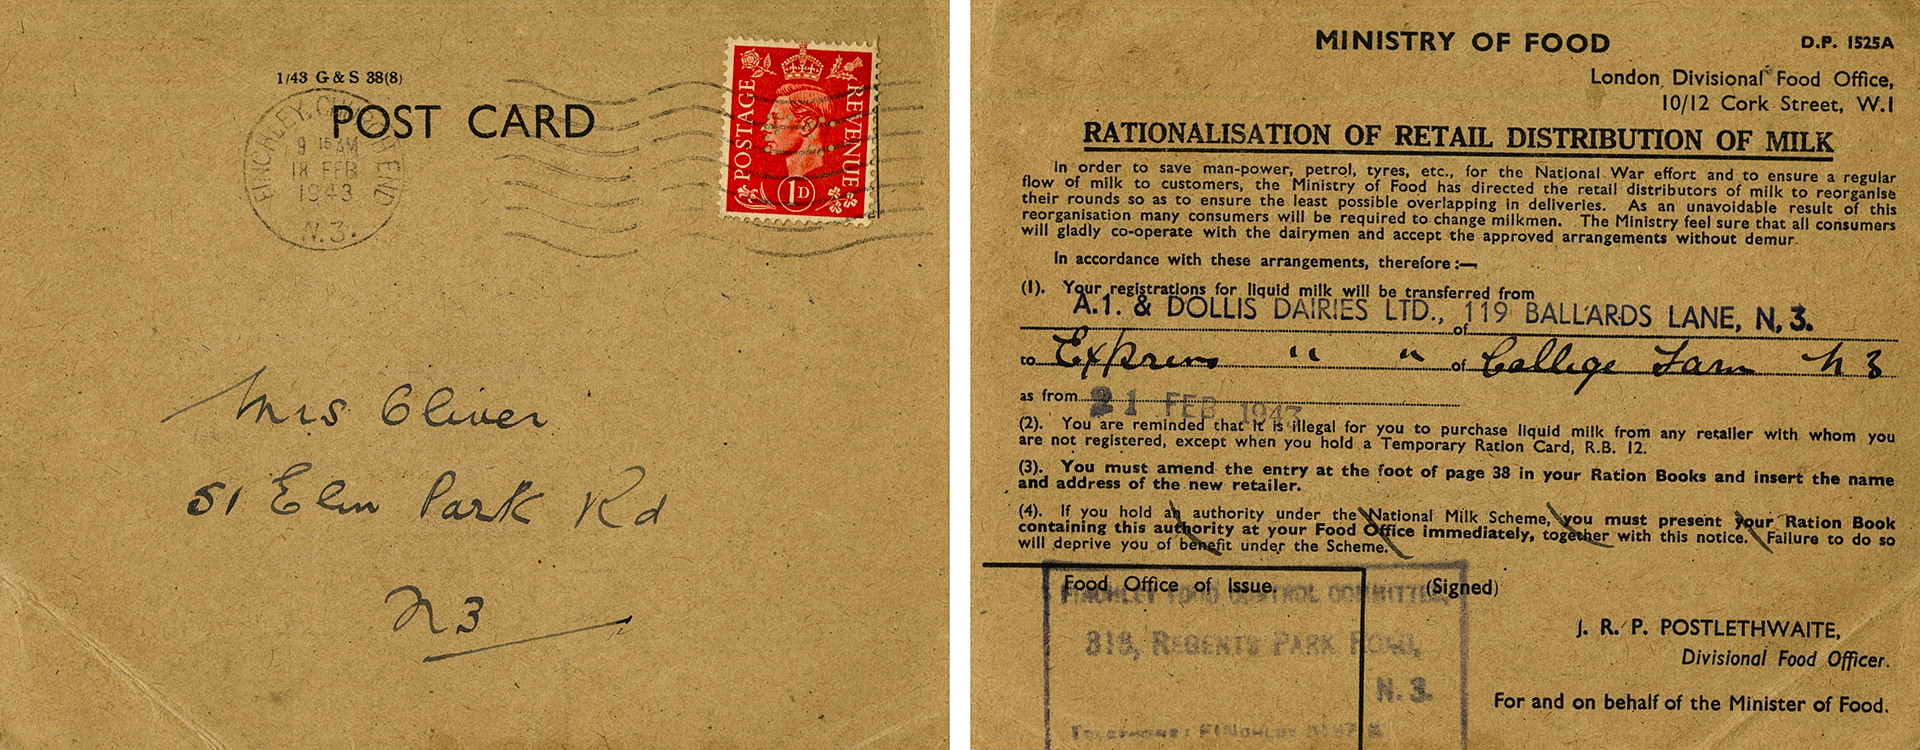 1/43 G & S 38(8)
POST CARD
FINCHLEY. CHURCH END
9 15 AM
18 FEB
1943
N.3.
POSTAGE REVENUE
1D
Mrs Oliver
51 Elm Park Rd
N3
MINISTRY OF FOOD
D.P. 1525A
London Divisional Food Office,
10/12 Cork Street, W.1
RATIONALISATION OF RETAIL DISTRIBUTION OF MILK
In order to save man-power, petrol, tyres, etc., for the National War effort and to ensure a regular
flow of milk to customers, the Ministry of Food has directed the retail distributors of milk to reorganise
their rounds so as to ensure the least possible overlapping in deliveries. As an unavoidable result of this
reorganisation many consumers will be required to change milkmen. The Ministry feel sure that all consumers
will gladly co-operate with the dairymen and accept the approved arrangements without demur.
In accordance with these arrangements, therefore :—
(1). Your registrations for liquid milk will be transferred from
A.1. & DOLLIS DAIRIES LTD., 119 BALLARDS LANE, N.3.
of
to Express " " of College Farm N 3
as from 21 FEB 1943
(2). You are reminded that it is illegal for you to purchase liquid milk from any retailer with whom you
are not registered, except when you hold a Temporary Ration Card, R.B. 12.
(3). You must amend the entry at the foot of page 38 in your Ration Books and insert the name
and address of the new retailer.
(4). If you hold an authority under the National Milk Scheme, you must present your Ration Book
containing this authority at your Food Office immediately, together with this notice. Failure to do so
will deprive you of benefit under the Scheme.
Food Office of Issue.
FINCHLEY FOOD CONTROL COMMITTEE,
318, REGENTS PARK ROAD,
N.3.
TELEPHONE: FINCHLEY
(Signed)
J. R. P. POSTLETHWAITE,
Divisional Food Officer.
For and on behalf of the Minister of Food.